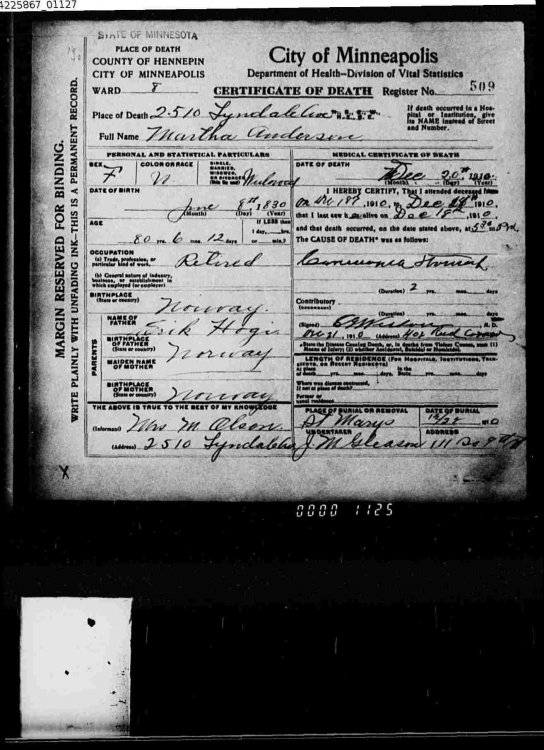 4225867_01127
STATE OF MINNESOTA
PLACE OF DEATH
COUNTY OF HENNEPIN
CITY OF MINNEAPOLIS
WARD 8
City of Minneapolis
Department of Health—Division of Vital Statistics
CERTIFICATE OF DEATH Register No. 509
Place of Death 2510 Lyndale Ave
If death occurred in a Hospital or Institution, give its NAME instead of Street and Number.
Full Name Martha Anderson
MARGIN RESERVED FOR BINDING.
WRITE PLAINLY WITH UNFADING INK—THIS IS A PERMANENT RECORD.
PERSONAL AND STATISTICAL PARTICULARS
SEX F
COLOR OR RACE W
SINGLE, MARRIED, WIDOWED, OR DIVORCED Widowed
DATE OF BIRTH
June 8th 1830
(Month) (Day) (Year)
AGE
80 yrs. 6 mos. 12 days
If LESS than
1 day, hrs.
or min.?
OCCUPATION
(a) Trade, profession, or particular kind of work.
Retired
(b) General nature of industry, business, or establishment in which employed (or employer)
BIRTHPLACE
(State or country)
Norway.
PARENTS
NAME OF FATHER
Erik
BIRTHPLACE OF FATHER
(State or country)
Norway
MAIDEN NAME OF MOTHER
BIRTHPLACE OF MOTHER
(State or country)
Norway
THE ABOVE IS TRUE TO THE BEST OF MY KNOWLEDGE
(Informant) Mrs M. Olson
(Address) 2510 Lyndale Av
MEDICAL CERTIFICATE OF DEATH
DATE OF DEATH
Dec 20th 1910
(Month) (Day) (Year)
I HEREBY CERTIFY, That I attended deceased from
1910, to Dec 1910,
that I last saw h alive on Dec 18th 1910,
and that death occurred, on the date stated above, at
The CAUSE OF DEATH* was as follows:
Carcinoma Stomach
(Duration) 2 yrs. mos. days
Contributory
(SECONDARY)
(Duration) yrs. mos. days
(Signed) M. D.
1910 (Address)
*State the Disease Causing Death, or, in deaths from Violent Causes, state (1) Means of Injury; (2) whether Accidental, Suicidal or Homicidal.
LENGTH OF RESIDENCE (For Hospitals, Institutions, Transients, or Recent Residents)
At place of death yrs. mos. days. In the State
Where was disease contracted, if not at place of death?
Former or usual residence
PLACE OF BURIAL OR REMOVAL
St Marys
DATE OF BURIAL
1910
UNDERTAKER
J. M. Gleason
ADDRESS
X
0000 1125